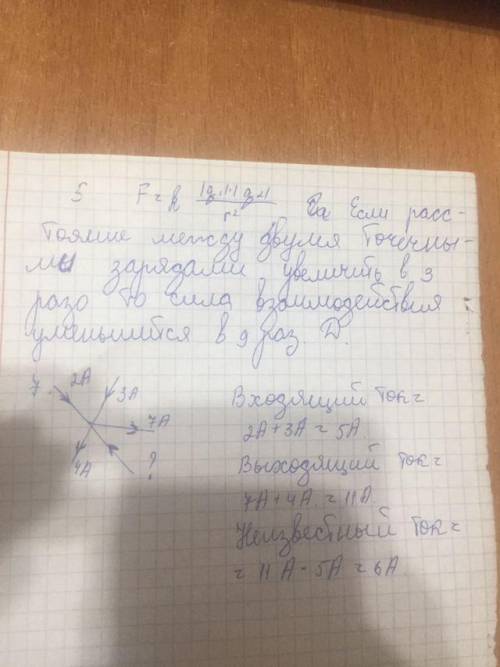 5 F = k |q₁|·|q₂| / r² Если расс-
тояние между двумя точечны-
ми зарядами увеличить в 3
раза то сила взаимодействия
уменьшится в 9 раз. D.
7. 2А
3А
7А
4А
?
Входящий ток =
2А+3А = 5А
Выходящий ток =
7А+4А = 11А
Неизвестный ток =
= 11А - 5А = 6А